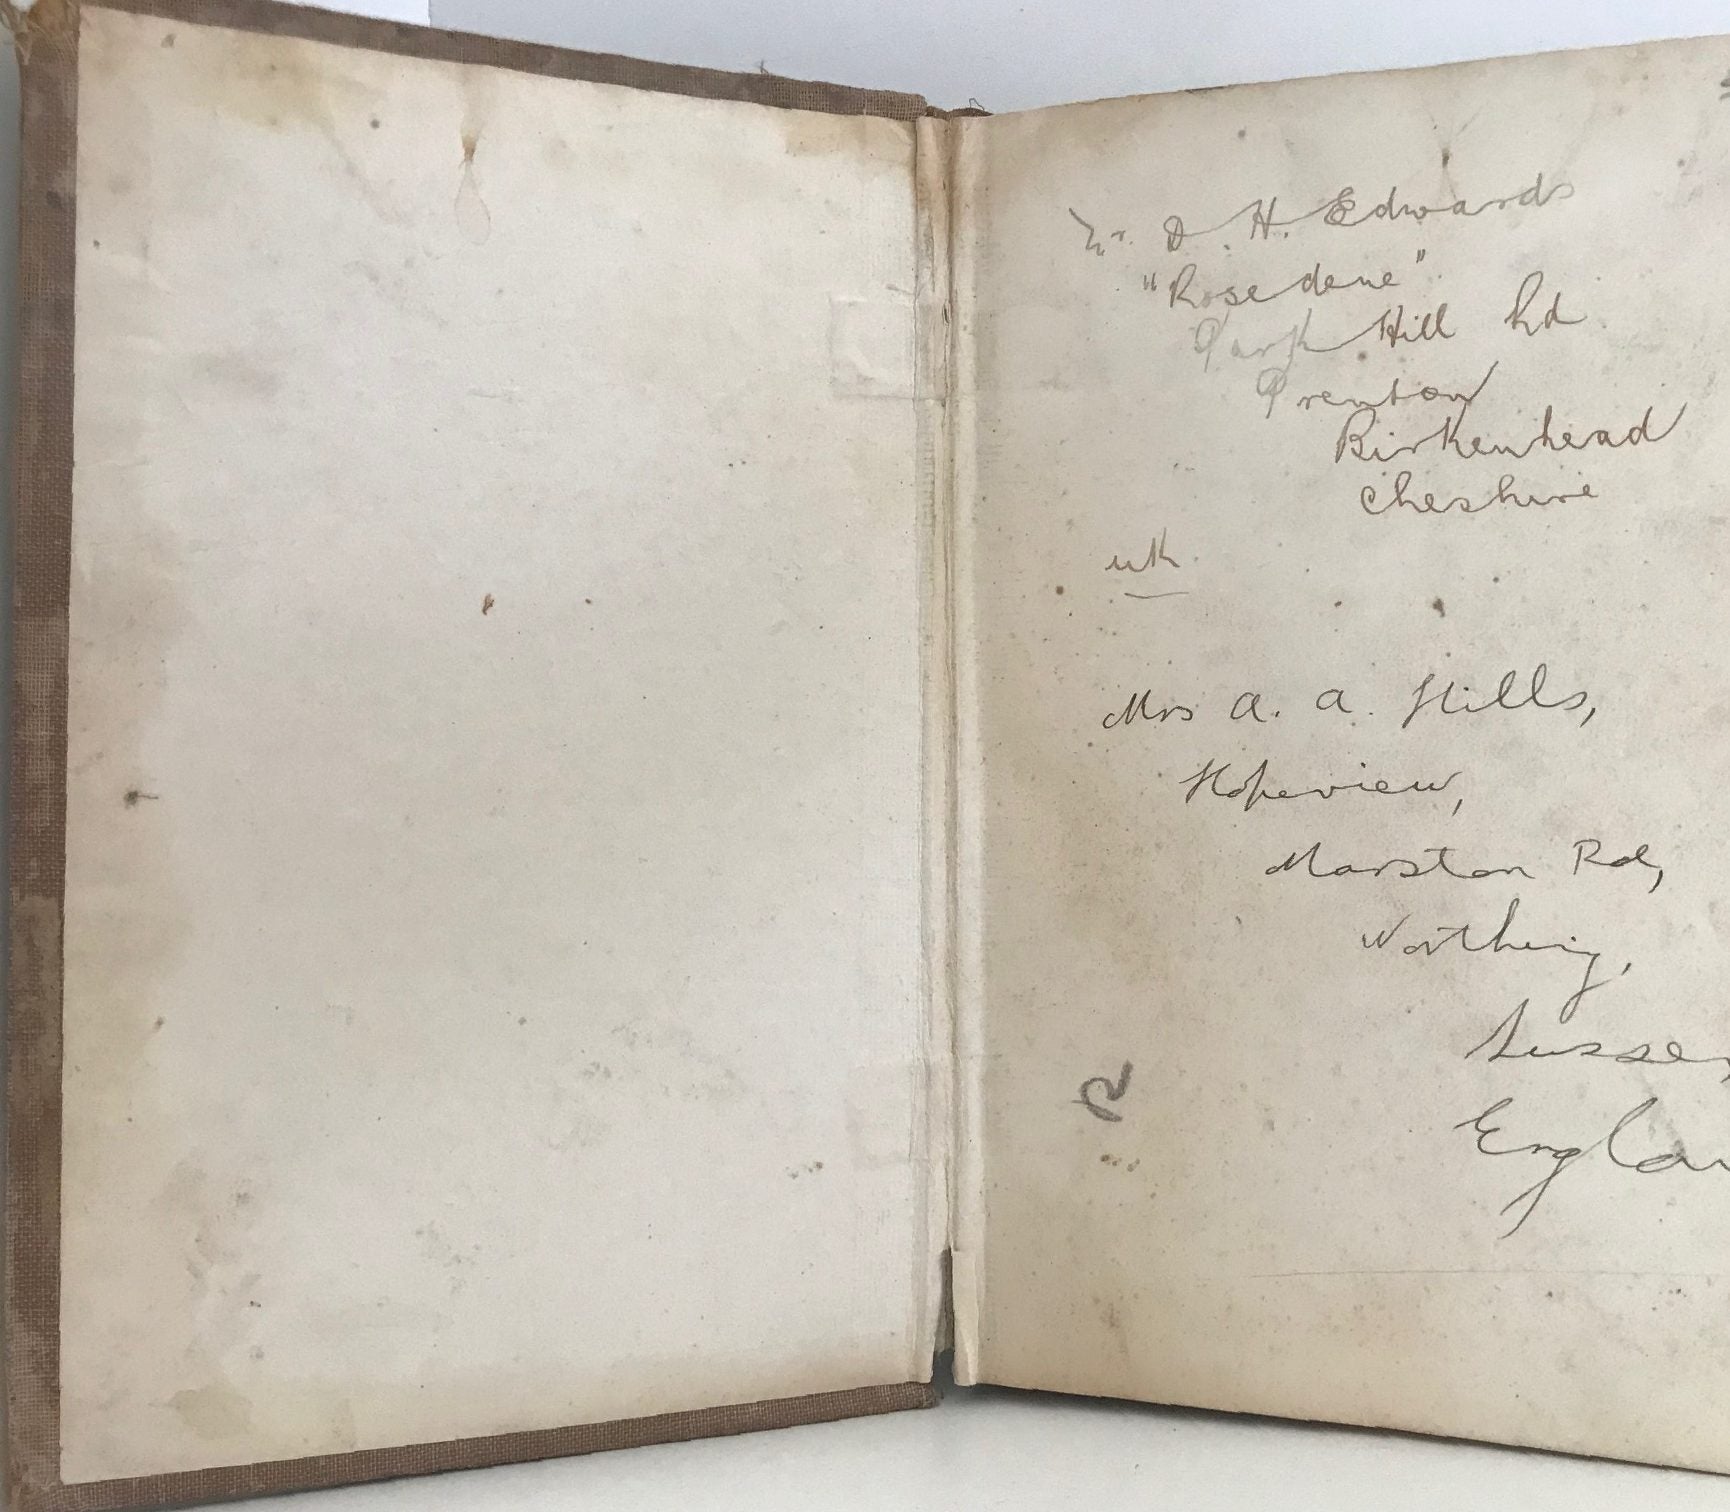 Mr. D. H. Edwards
"Rosedene"
Park Hill Rd
Prenton
Birkenhead
Cheshire
UK
Mrs A. A. Hills,
Hopeview,
Marston Rd,
Worthing,
Sussex
Englan